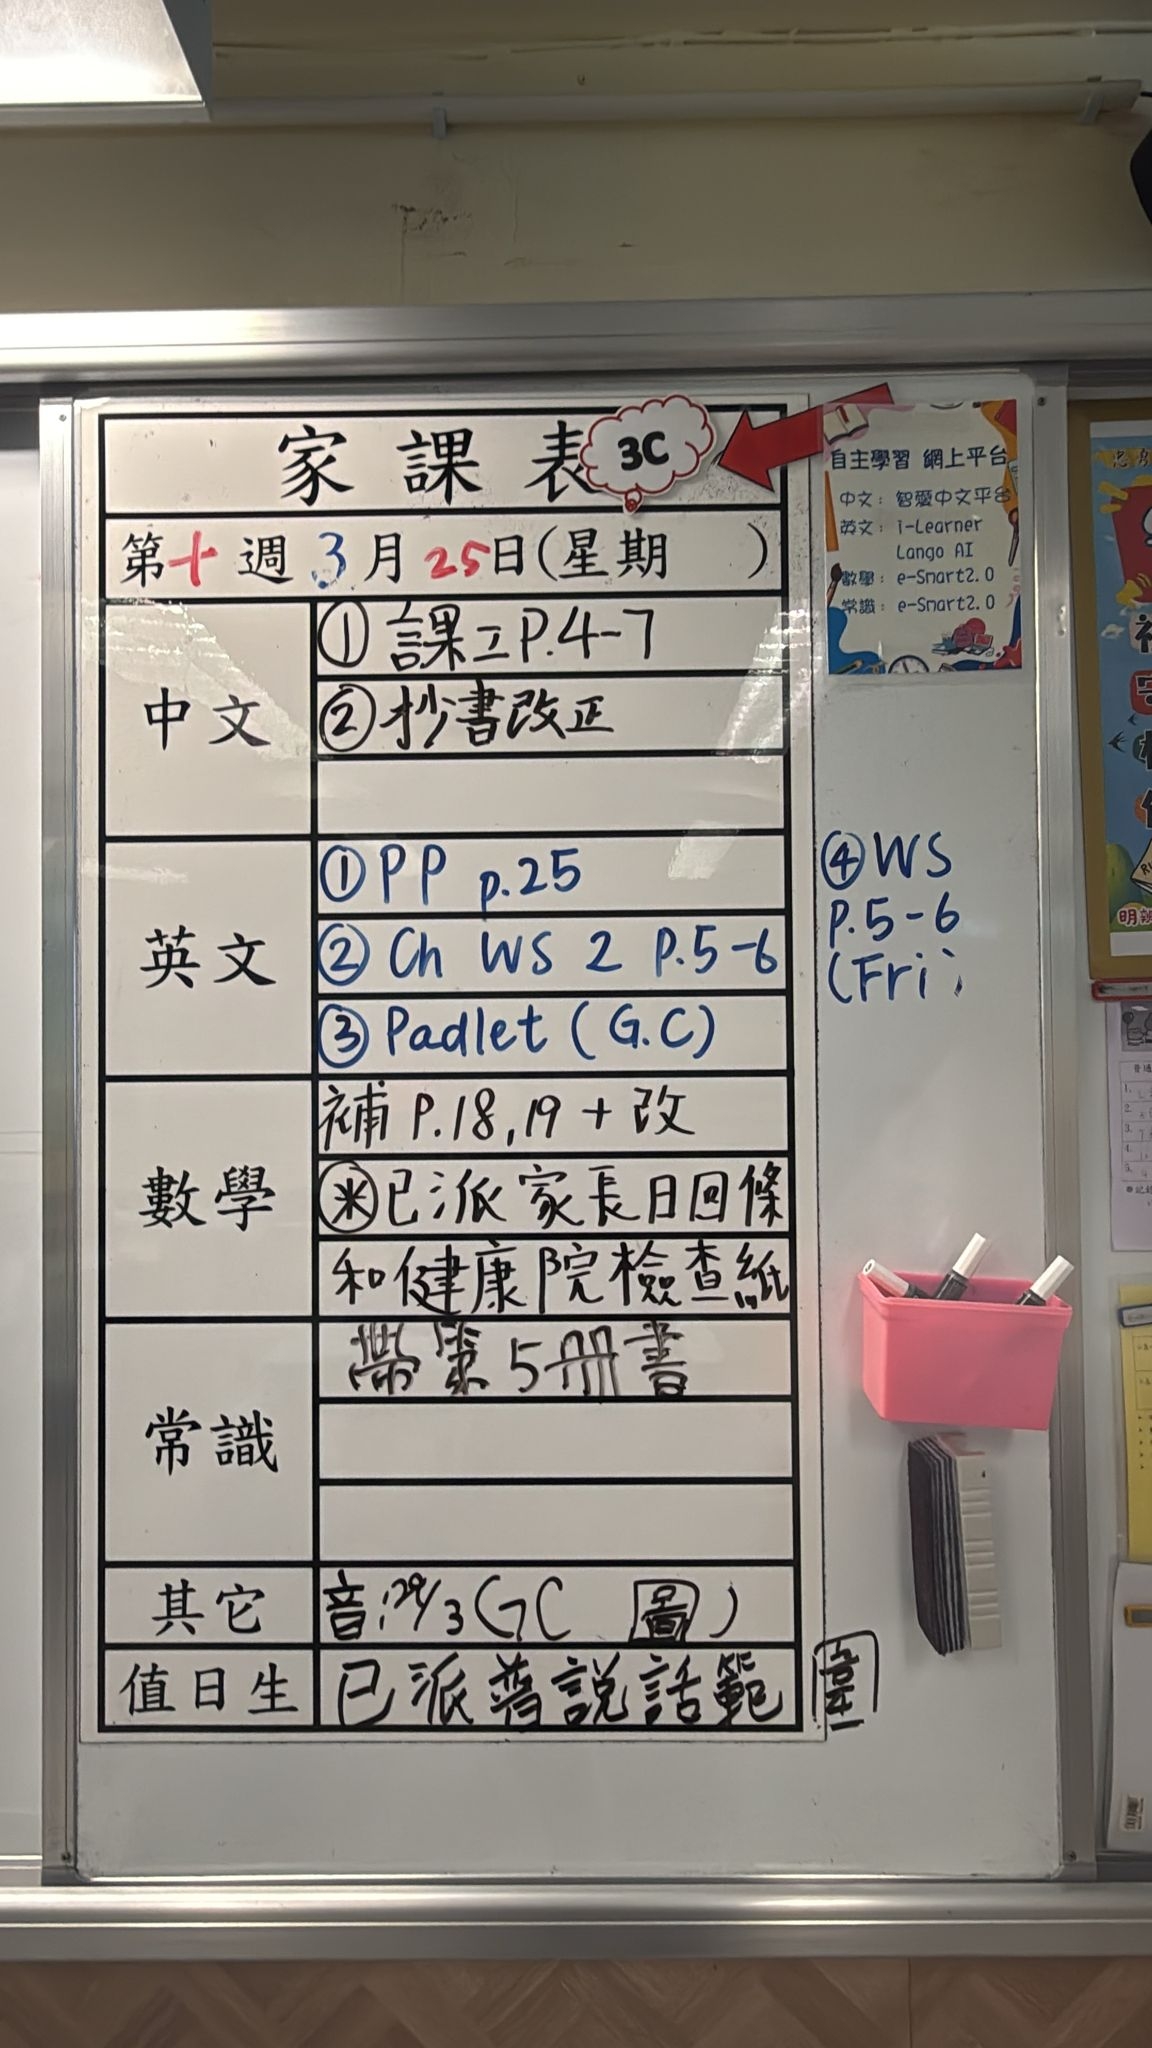 家課表
3C
第十週 3月25日(星期 )
中文
① 課二P.4-7
② 抄書改正
英文
① PP p.25
② Ch WS 2 P.5-6
③ Padlet (G.C)
④ WS
P.5-6
(Fri)
數學
補 P.18,19 + 改
※已派家長日回條
和健康院檢查紙
常識
帶第5冊書
其它
音:29/3(GC 圖)
值日生
已派普說話範圍
自主學習 網上平台
中文: 智愛中文平台
英文: i-Learner
Lango AI
數學: e-Smart2.0
常識: e-Smart2.0